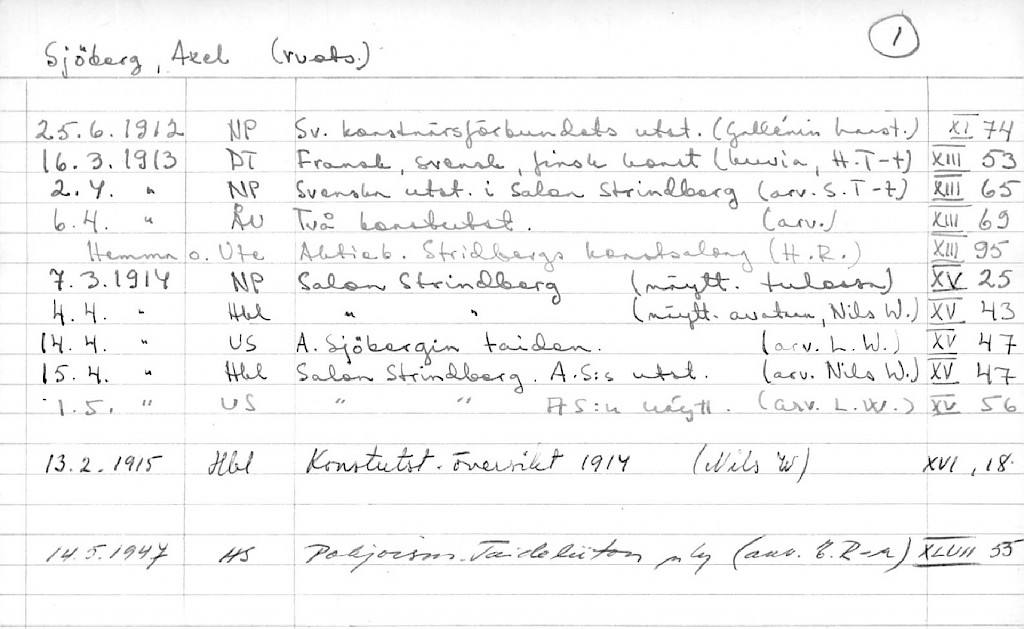 1
Sjöberg, Axel (ruots.)
25.6.1912 NP Sv. konstnärsförbundets utst. (Gallénin luust.) XI 74
16.3.1913 DT Fransk, svensk, finsk konst (kuvia, H.T-t) XIII 53
2.4. " NP Svenska utst. i Salon Strindberg (arv. S.T-t) XIII 65
6.4. " ÅU Två konstutst. (arv.) XIII 69
Hemma o. Ute Aktieb. Stridbergs konstsalong (H.R.) XIII 95
7.3.1914 NP Salon Strindberg (näytt. tulossa) XV 25
4.4. " Hbl " " (näytt. avataan, Nils W.) XV 43
14.4. " US A. Sjöbergin taiden. (arv. L.W.) XV 47
15.4. " Hbl Salon Strindberg. A.S:s utst. (arv. Nils W.) XV 47
1.5. " US " " AS:n näytt. (arv. L.W.) XV 56
13.2.1915 Hbl Konstutst. översikt 1914 (Nils W) XVI, 18.
14.5.1947 HS Pohjoism. Taideliiton nly (arv. E.R-n) XLVII 55